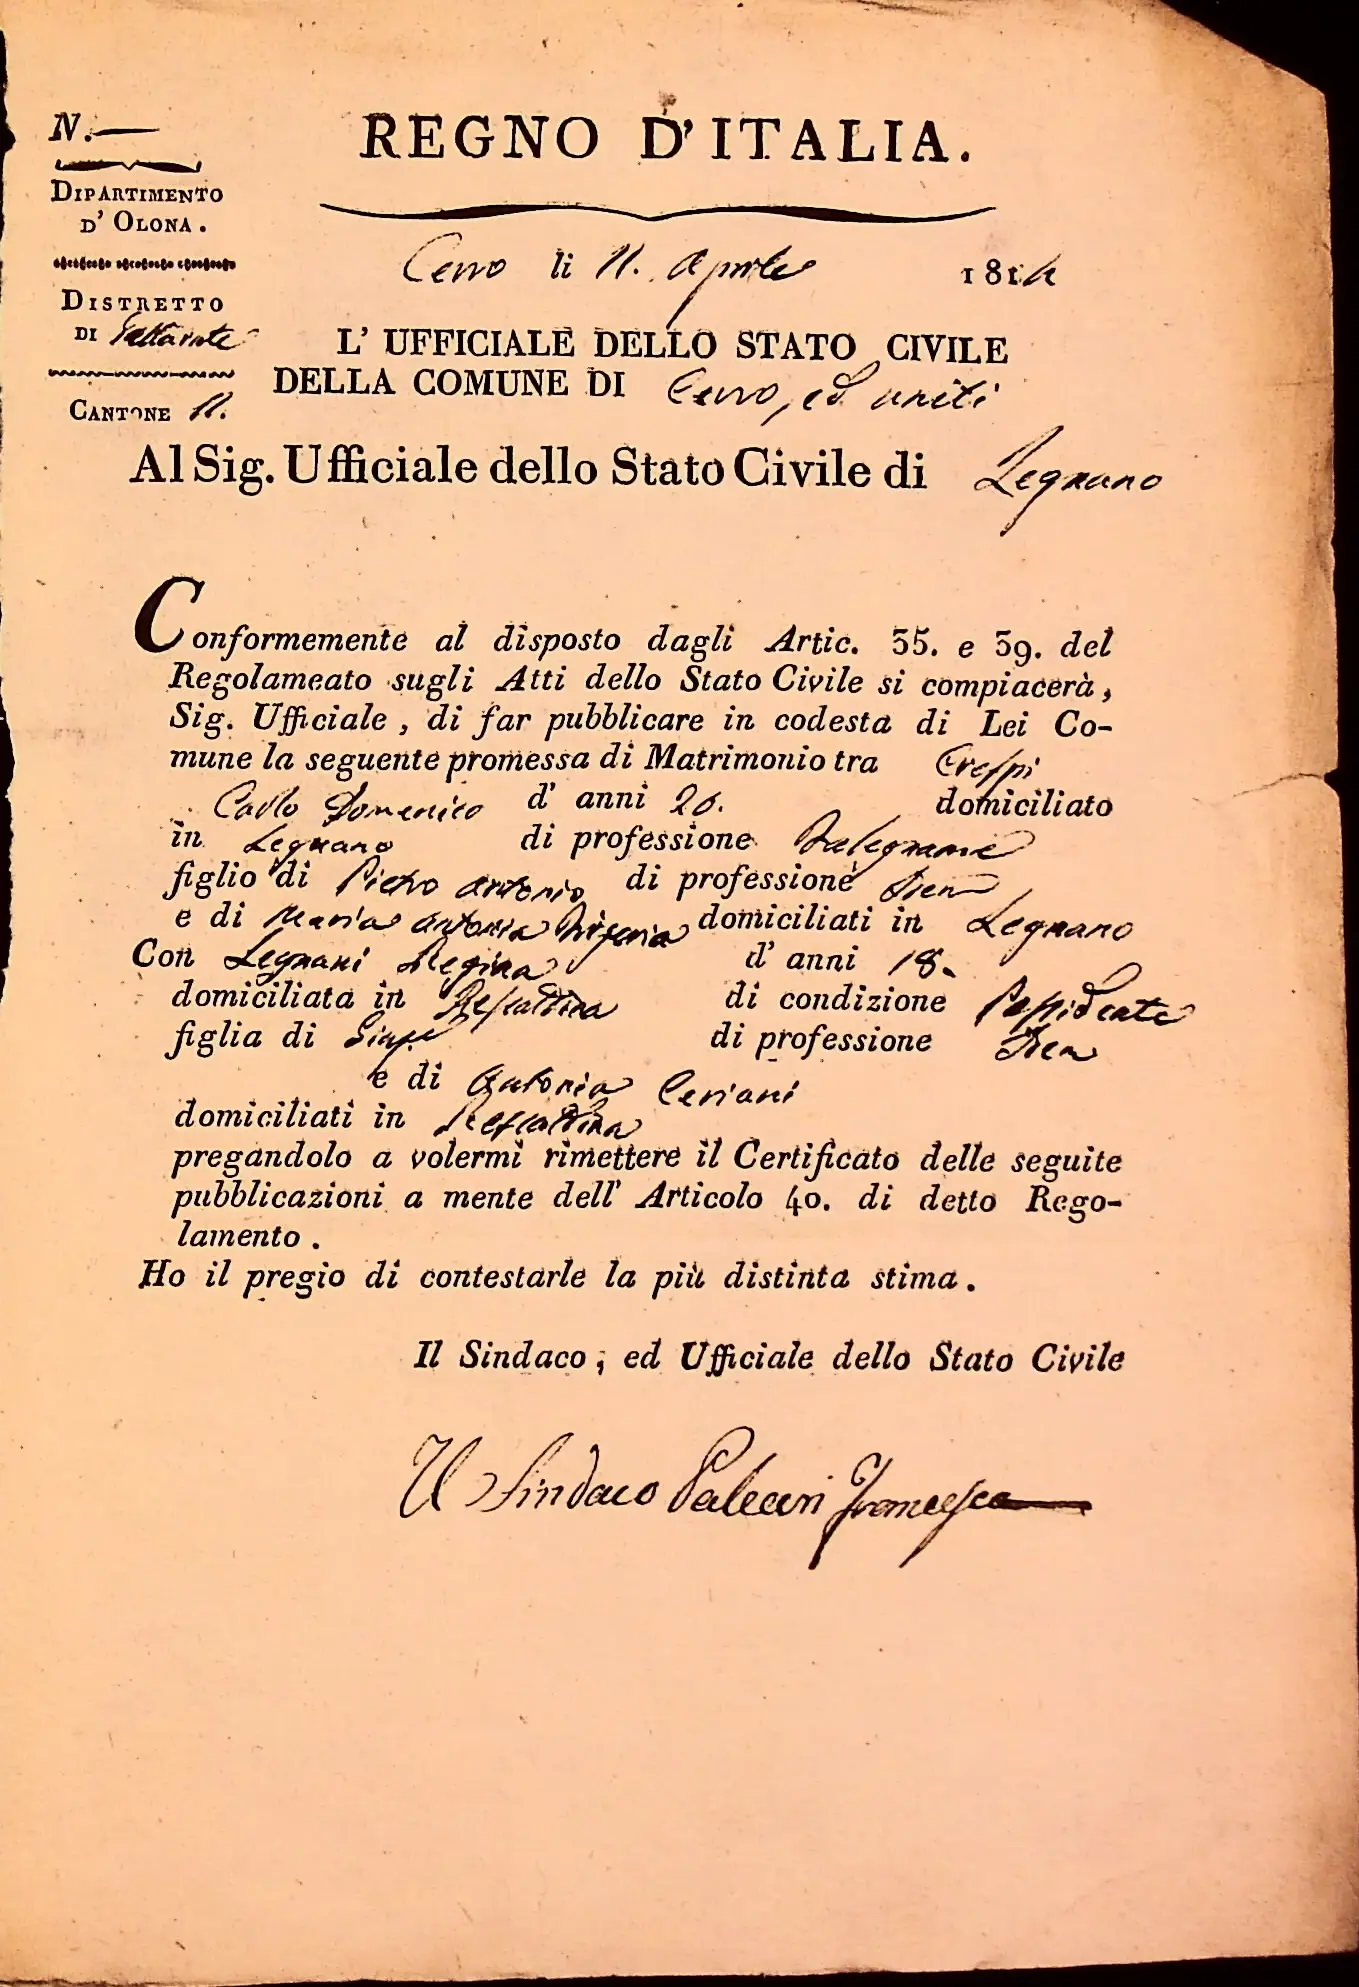 N.
REGNO D'ITALIA.
DIPARTIMENTO
D' OLONA.
Cerro li 11. Aprile 1814
DISTRETTO
DI Gallarate
CANTONE 11.
L' UFFICIALE DELLO STATO CIVILE
DELLA COMUNE DI Cerro, ed uniti
Al Sig. Ufficiale dello Stato Civile di Legnano
Conformemente al disposto dagli Artic. 35. e 39. del
Regolameato sugli Atti dello Stato Civile si compiacerà,
Sig. Ufficiale, di far pubblicare in codesta di Lei Co-
mune la seguente promessa di Matrimonio tra Crespi
Carlo Domenico d' anni 26. domiciliato
in Legnano di professione Falegname
figlio di Pietro Antonio di professione
e di Maria Antonia domiciliati in Legnano
Con Legnani Regina d' anni 18.
domiciliata in Rescaldina di condizione Possidente
figlia di Giuspe di professione
e di Antonia Ceriani
domiciliati in Rescaldina
pregandolo a volermi rimettere il Certificato delle seguite
pubblicazioni a mente dell' Articolo 40. di detto Rego-
lamento.
Ho il pregio di contestarle la più distinta stima.
Il Sindaco, ed Ufficiale dello Stato Civile
Il Sindaco Paleari Francesco